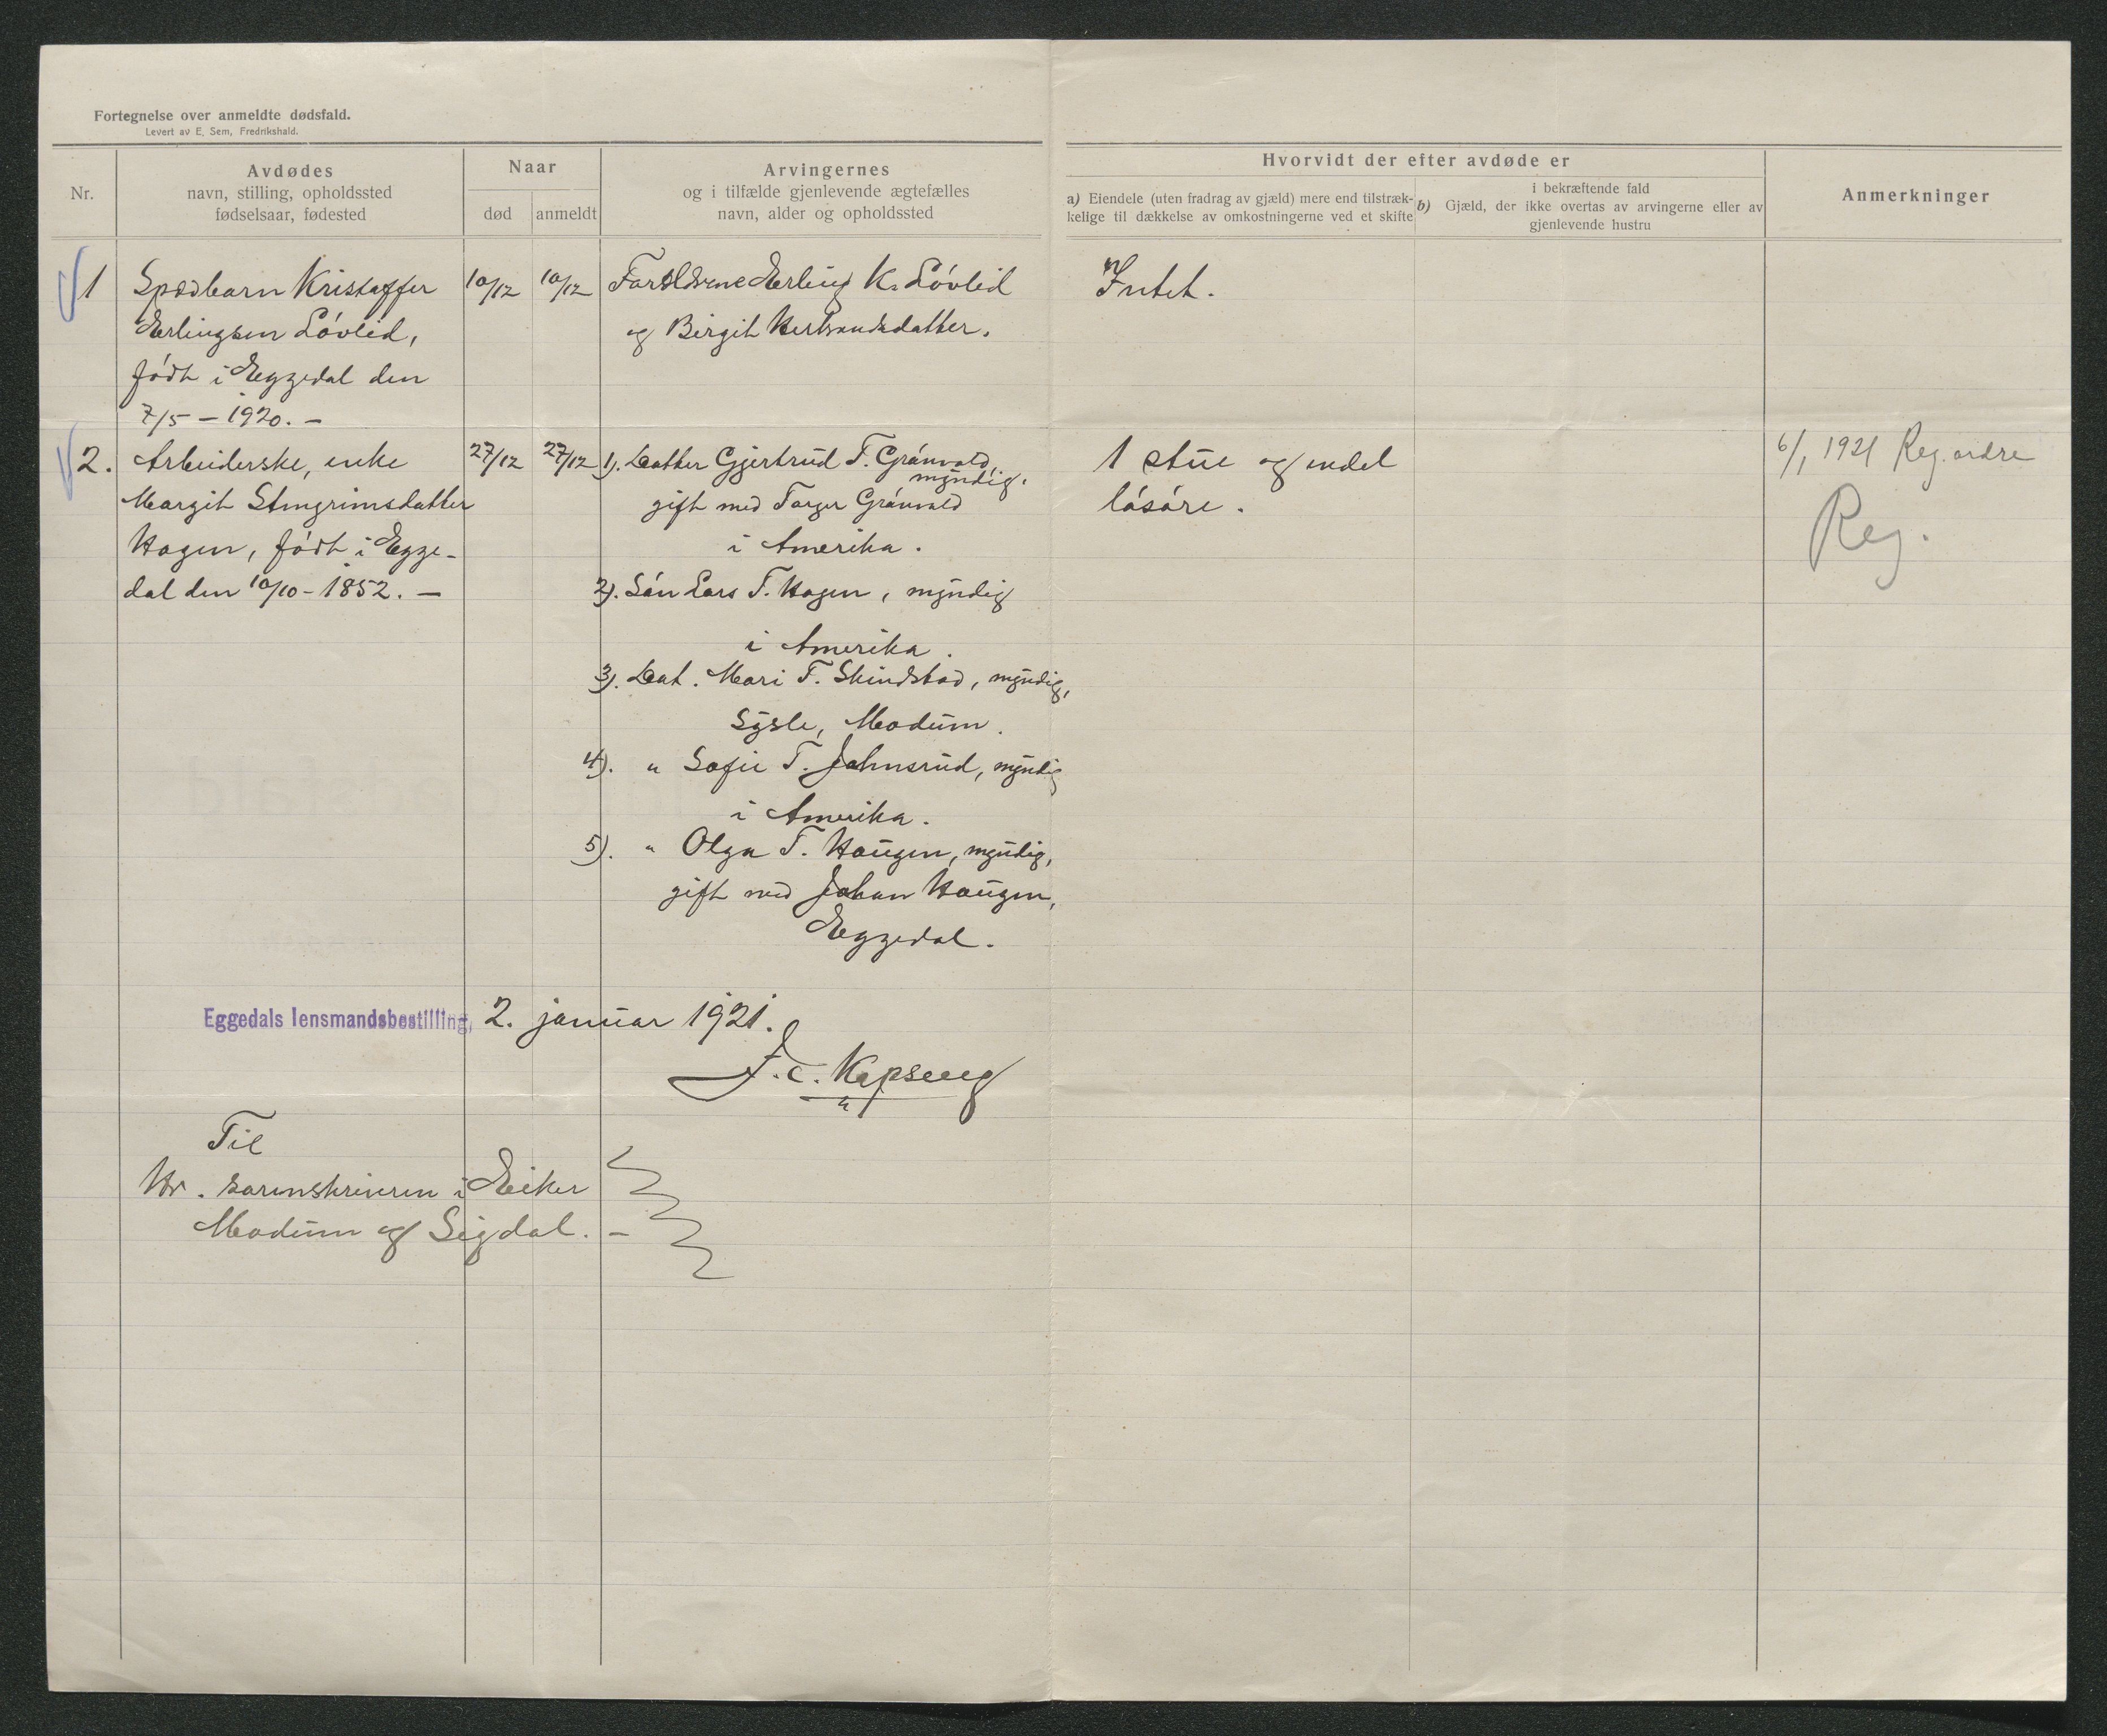 Fortegnelse over anmeldte dødsfald.
Levert av E. Sem, Fredrikshald.
Nr.
Avdødes
navn, stilling, opholdssted
fødselsaar, fødested
Naar
død
anmeldt
Arvingernes
og i tilfælde gjenlevende ægtefælles
navn, alder og opholdssted
Hvorvidt der efter avdøde er
a) Eiendele (uten fradrag av gjæld) mere end tilstræk-
kelige til dækkelse av omkostningerne ved et skifte
i bekræftende fald
b) Gjæld, der ikke overtas av arvingerne eller av
gjenlevende hustru
Anmerkninger
1
Spædbarn Kristoffer
Erlingsen Lóvlid,
fódt i Eggedal den
7/5 - 1920. -
10/12
10/12
Forældrene Erling K. Lóvlid
og Birgit
Intet.
2.
Arbeiderske, enke
Margit Stengrimsdatter
Hagen, fódt i Egge-
dal den 10/10 - 1852. -
27/12
27/12
1). Datter Gjertrud T. Grónvold,
myndig,
gift med Torger Grónvold
i Amerika.
2). Són Lars T. Hagen, myndig
i Amerika.
3). Dat. Mari T. Skindstad, myndig,
Sysle, Modum.
4). " Sofie T. Johnsrud, myndig
i Amerika.
5). " Olga T. Haugen, myndig,
gift med Johan Haugen,
Eggedal.
1 stue og endel
lósóre.
6/1 1921 Reg. ordre
Reg.
Eggedals lensmandsbestilling, 2. januar 1921.
Til
Hr. sorenskriveren i Eiker
Modum og Sigdal. -